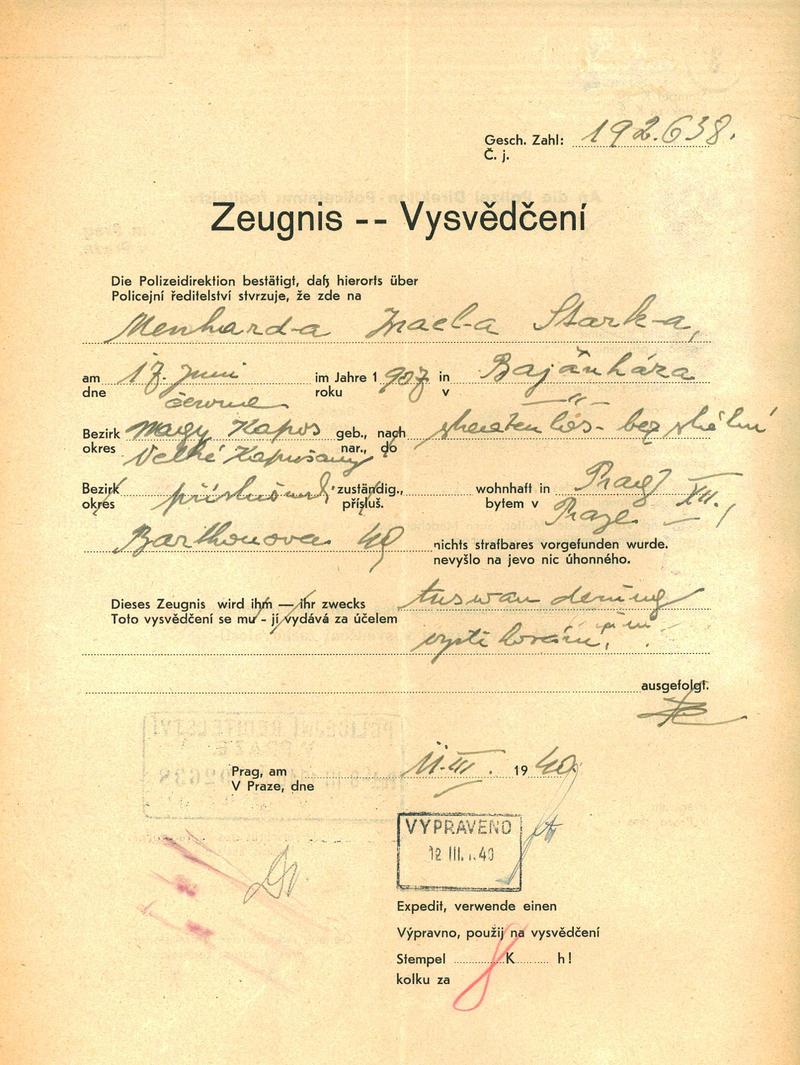 Gesch. Zahl: 192.638.
Č. j.
Zeugnis -- Vysvědčení
Die Polizeidirektion bestätigt, daß hierorts über
Policejní ředitelství stvrzuje, že zde na
Menhard-a Israel-a Stark-a,
am 17. Juni im Jahre 1907 in Bajánháza
dne června roku v —"—
Bezirk Nagy Kapos geb., nach staatenlos - bez státní
okres Velké Kapušany nar., do
Bezirk příslušnosti zuständig., wohnhaft in Prag
okres přísluš. bytem v Praze XII.,
Barthonova 49 nichts strafbares vorgefunden wurde.
nevyšlo na jevo nic úhonného.
Dieses Zeugnis wird ihm — ihr zwecks Auswanderung
Toto vysvědčení se mu - jí vydává za účelem
vystěhování
ausgefolgt.
Prag, am 11.III. 1940
V Praze, dne
VYPRAVENO
12 III. 1.40
Dr.
Expedit, verwende einen
Výpravno, použij na vysvědčení
Stempel K h!
kolku za